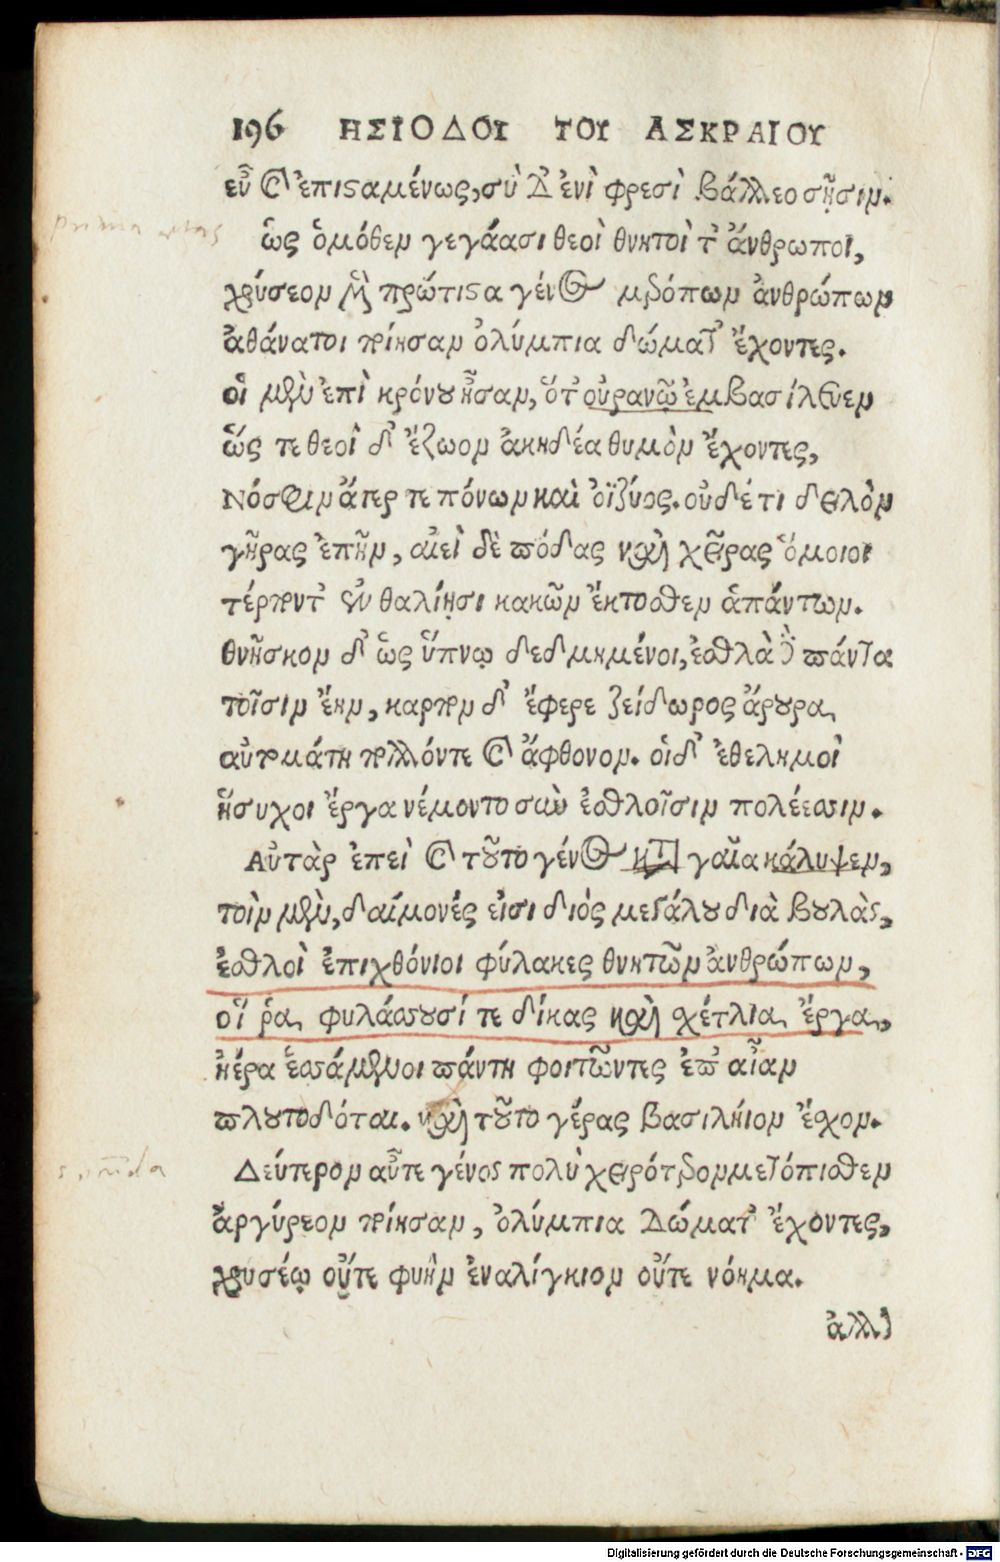 196 ΗΣΙΟΔΟΥ ΤΟΥ ΑΣΚΡΑΙΟΥ
εὖ καὶ ἐπισταμένως, σὺ δ' ἐνὶ φρεσὶ βάλλεο σῇσιν.
prima ætas
ὡς ὁμόθεν γεγάασι θεοὶ θνητοὶ τ' ἄνθρωποι,
χρύσεον μὲν πρώτιστα γένος μερόπων ἀνθρώπων
ἀθάνατοι ποίησαν ὀλύμπια δώματ' ἔχοντες.
οἱ μὲν ἐπὶ κρόνου ἦσαν, ὅτ' οὐρανῷ ἐμβασίλευεν
ὥς τε θεοὶ δ' ἔζωον ἀκηδέα θυμὸν ἔχοντες,
Νόσφιν ἄτερ τε πόνων καὶ ὀϊζύος. οὐδέ τι δειλὸν
γῆρας ἐπῆν, αἰεὶ δὲ πόδας καὶ χεῖρας ὅμοιοι
τέρποντ' ἐν θαλίῃσι κακῶν ἔκτοσθεν ἁπάντων.
θνῆσκον δ' ὡς ὕπνῳ δεδμημένοι, ἐσθλὰ δὲ πάντα
τοῖσιν ἔην, καρπὸν δ' ἔφερε ζείδωρος ἄρουρα
αὐτομάτη πολλόν τε καὶ ἄφθονον. οἱ δ' ἐθελημοὶ
ἥσυχοι ἔργα νέμοντο σὺν ἐσθλοῖσιν πολέεσσιν.
Αὐτὰρ ἐπεὶ καὶ τοῦτο γένος κατὰ γαῖα κάλυψεν,
τοὶν μὲν, δαίμονές εἰσι διὸς μεγάλου διὰ βουλὰς,
ἐσθλοὶ ἐπιχθόνιοι φύλακες θνητῶν ἀνθρώπων,
οἵ ῥα φυλάσσουσί τε δίκας καὶ σχέτλια ἔργα,
ἠέρα ἑσσάμενοι πάντη φοιτῶντες ἐπ' αἶαν
πλουτοδόται. καὶ τοῦτο γέρας βασιλήιον ἔσχον.
secunda
Δεύτερον αὖτε γένος πολὺ χειρότερον μετόπισθεν
ἀργύρεον ποίησαν, ὀλύμπια δώματ' ἔχοντες,
χρυσέῳ οὔτε φυὴν ἐναλίγκιον οὔτε νόημα.
ἀλλ'
Digitalisierung gefördert durch die Deutsche Forschungsgemeinschaft - DFG